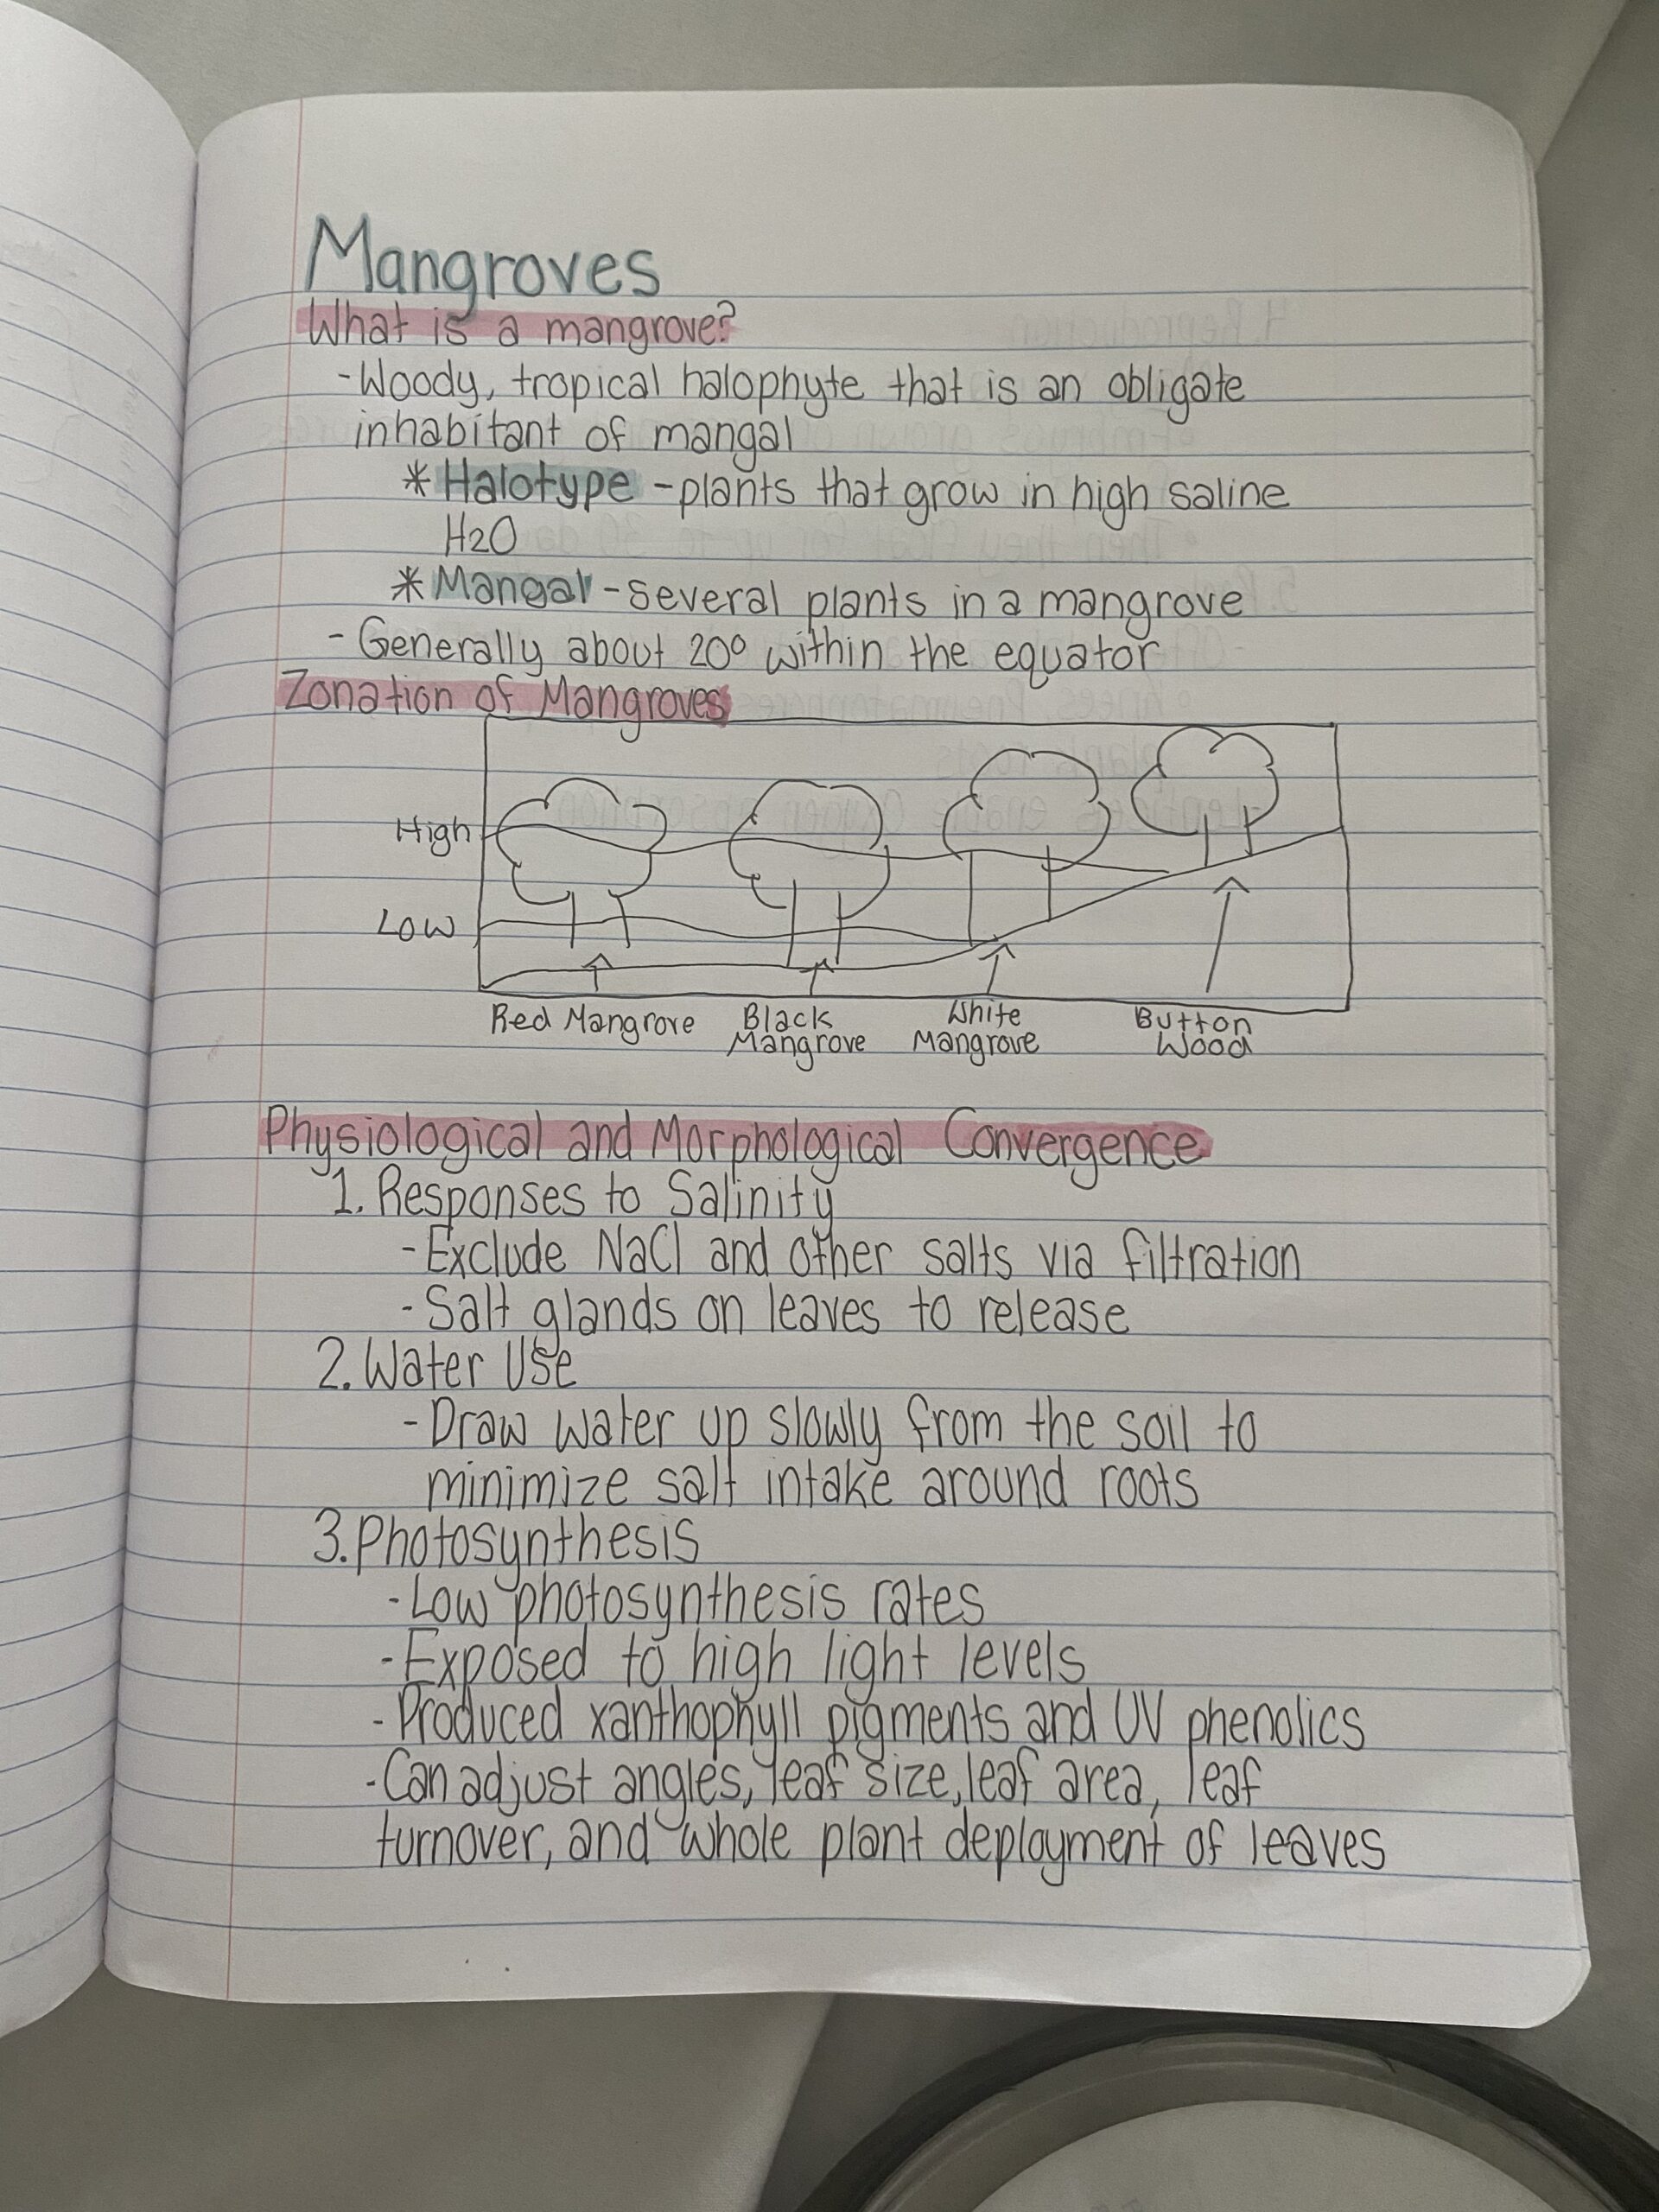 Mangroves
What is a mangrove?
-Woody, tropical halophyte that is an obligate
inhabitant of mangal
*Halotype -plants that grow in high saline
H2O
*Mangal -several plants in a mangrove
- Generally about 20° within the equator
Zonation of Mangroves
High
Low
Red Mangrove Black Mangrove White Mangrove Button Wood
Physiological and Morphological Convergence
1. Responses to Salinity
-Exclude NaCl and other salts via filtration
-Salt glands on leaves to release
2. Water Use
-Draw water up slowly from the soil to
minimize salt intake around roots
3. Photosynthesis
-Low photosynthesis rates
-Exposed to high light levels
-Produced xanthophyll pigments and UV phenolics
-Can adjust angles, leaf size, leaf area, leaf
turnover, and whole plant deployment of leaves